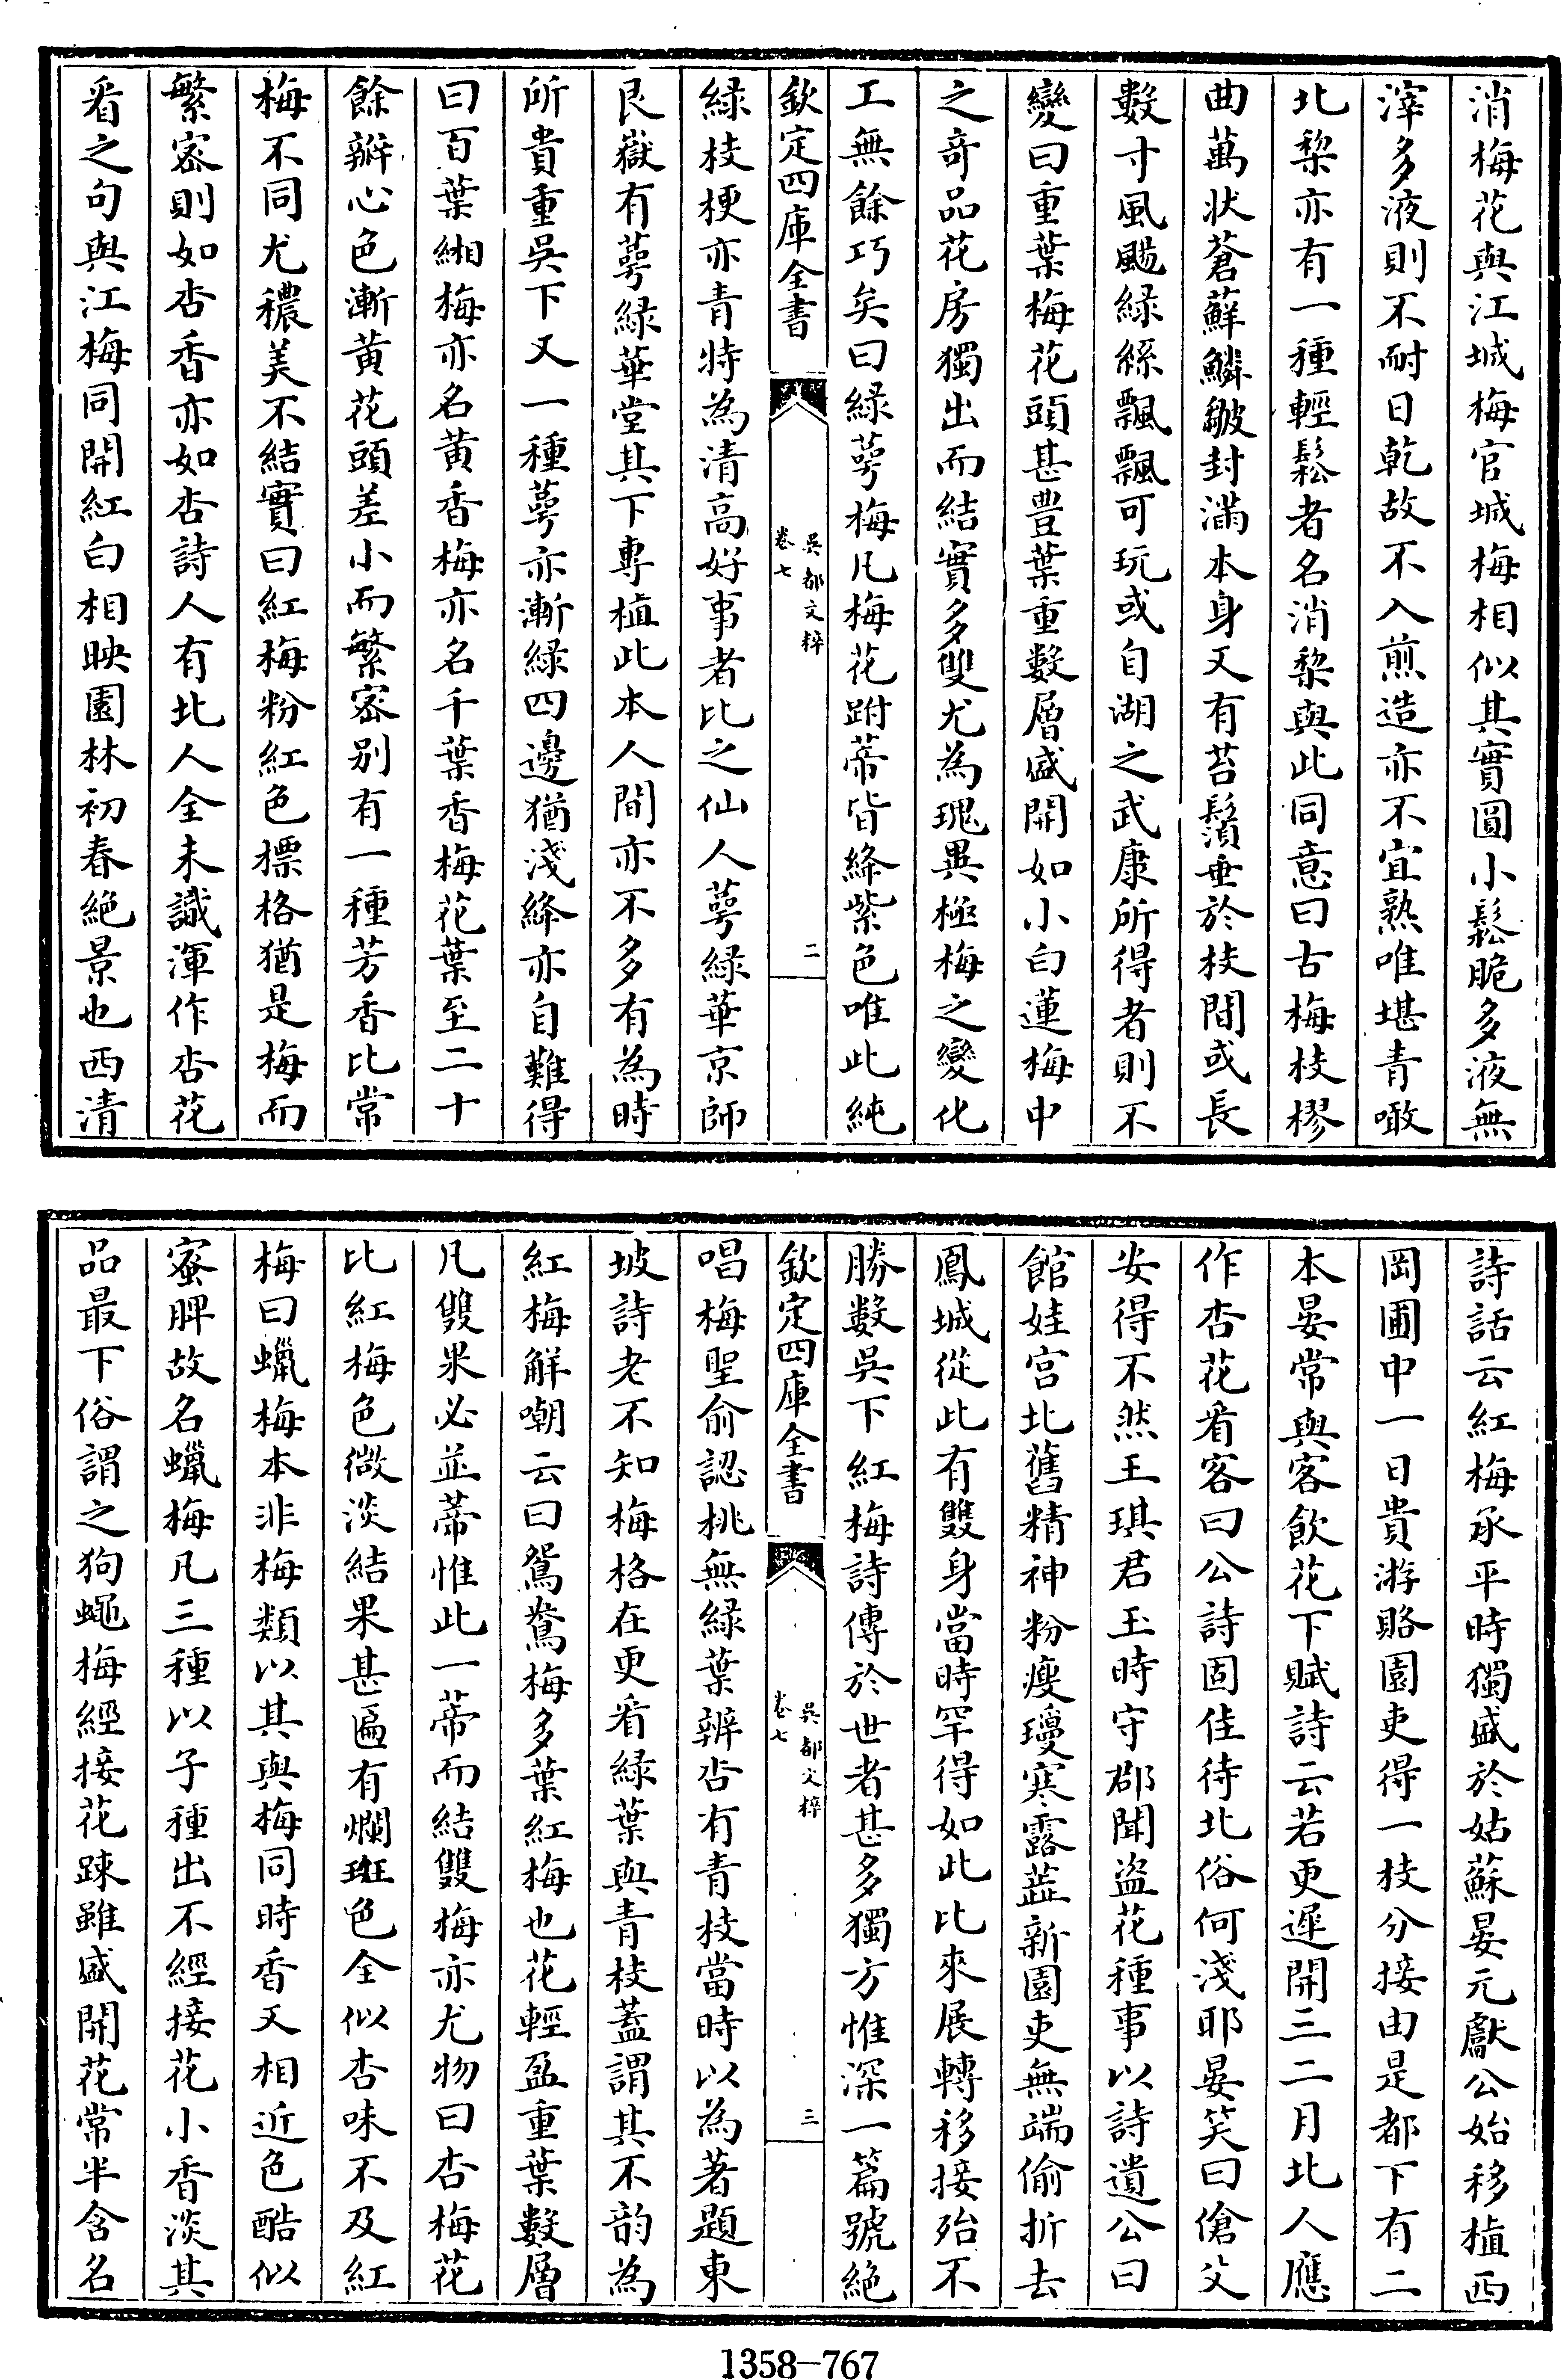 消梅花與江城梅官城梅相似其實圓小鬆脆多液無
滓多液則不耐日乾故不入煎造亦不宜熟唯堪青噉
北梨亦有一種輕鬆者名消梨與此同意曰古梅枝樛
曲萬狀蒼蘚鱗皴封滿本身又有苔鬚垂於枝間或長
數寸風颺綠絲飄飄可玩或自湖之武康所得者則不
變曰重葉梅花頭甚豊葉重數層盛開如小白蓮梅中
之奇品花房獨出而結實多雙尤為瑰異極梅之變化
工無餘巧矣曰綠萼梅凡梅花跗蒂皆絳紫色唯此純
欽定四庫全書
吳都文粹
卷七
二
綠枝梗亦青特為清高好事者比之仙人萼綠華京師
艮嶽有萼綠華堂其下專植此本人間亦不多有為時
所貴重吳下又一種萼亦漸綠四邊猶淺絳亦自難得
曰百葉緗梅亦名黄香梅亦名千葉香梅花葉至二十
餘瓣心色漸黄花頭差小而繁宻别有一種芳香比常
梅不同尤穠美不結實曰紅梅粉紅色標格猶是梅而
繁宻則如杏香亦如杏詩人有北人全未識渾作杏花
看之句與江梅同開紅白相映園林初春絶景也西清
詩話云紅梅承平時獨盛於姑蘇晏元獻公始移植西
岡圃中一日貴游賂園吏得一枝分接由是都下有二
本晏常與客飲花下賦詩云若更遲開三二月北人應
作杏花看客曰公詩固佳待北俗何淺耶晏笑曰傖父
安得不然王琪君玉時守郡聞盜花種事以詩遺公曰
館娃宫北舊精神粉瘦瓊寒露蘂新園吏無端偷折去
鳳城從此有雙身當時罕得如此比來展轉移接殆不
勝數吳下紅梅詩傳於世者甚多獨方惟深一篇號絶
欽定四庫全書
吳都文粹
卷七
三
唱梅聖俞認桃無綠葉辨杏有青枝當時以為著題東
坡詩老不知梅格在更看綠葉與青枝蓋謂其不韵為
紅梅解嘲云曰鴛鴦梅多葉紅梅也花輕盈重葉數層
凡雙果必並蒂惟此一蒂而結雙梅亦尤物曰杏梅花
比紅梅色微淡結果甚匾有斕斑色全似杏味不及紅
梅曰蠟梅本非梅類以其與梅同時香又相近色酷似
蜜脾故名蠟梅凡三種以子種出不經接花小香淡其
品最下俗謂之狗蠅梅經接花疎雖盛開花常半含名
1358-767